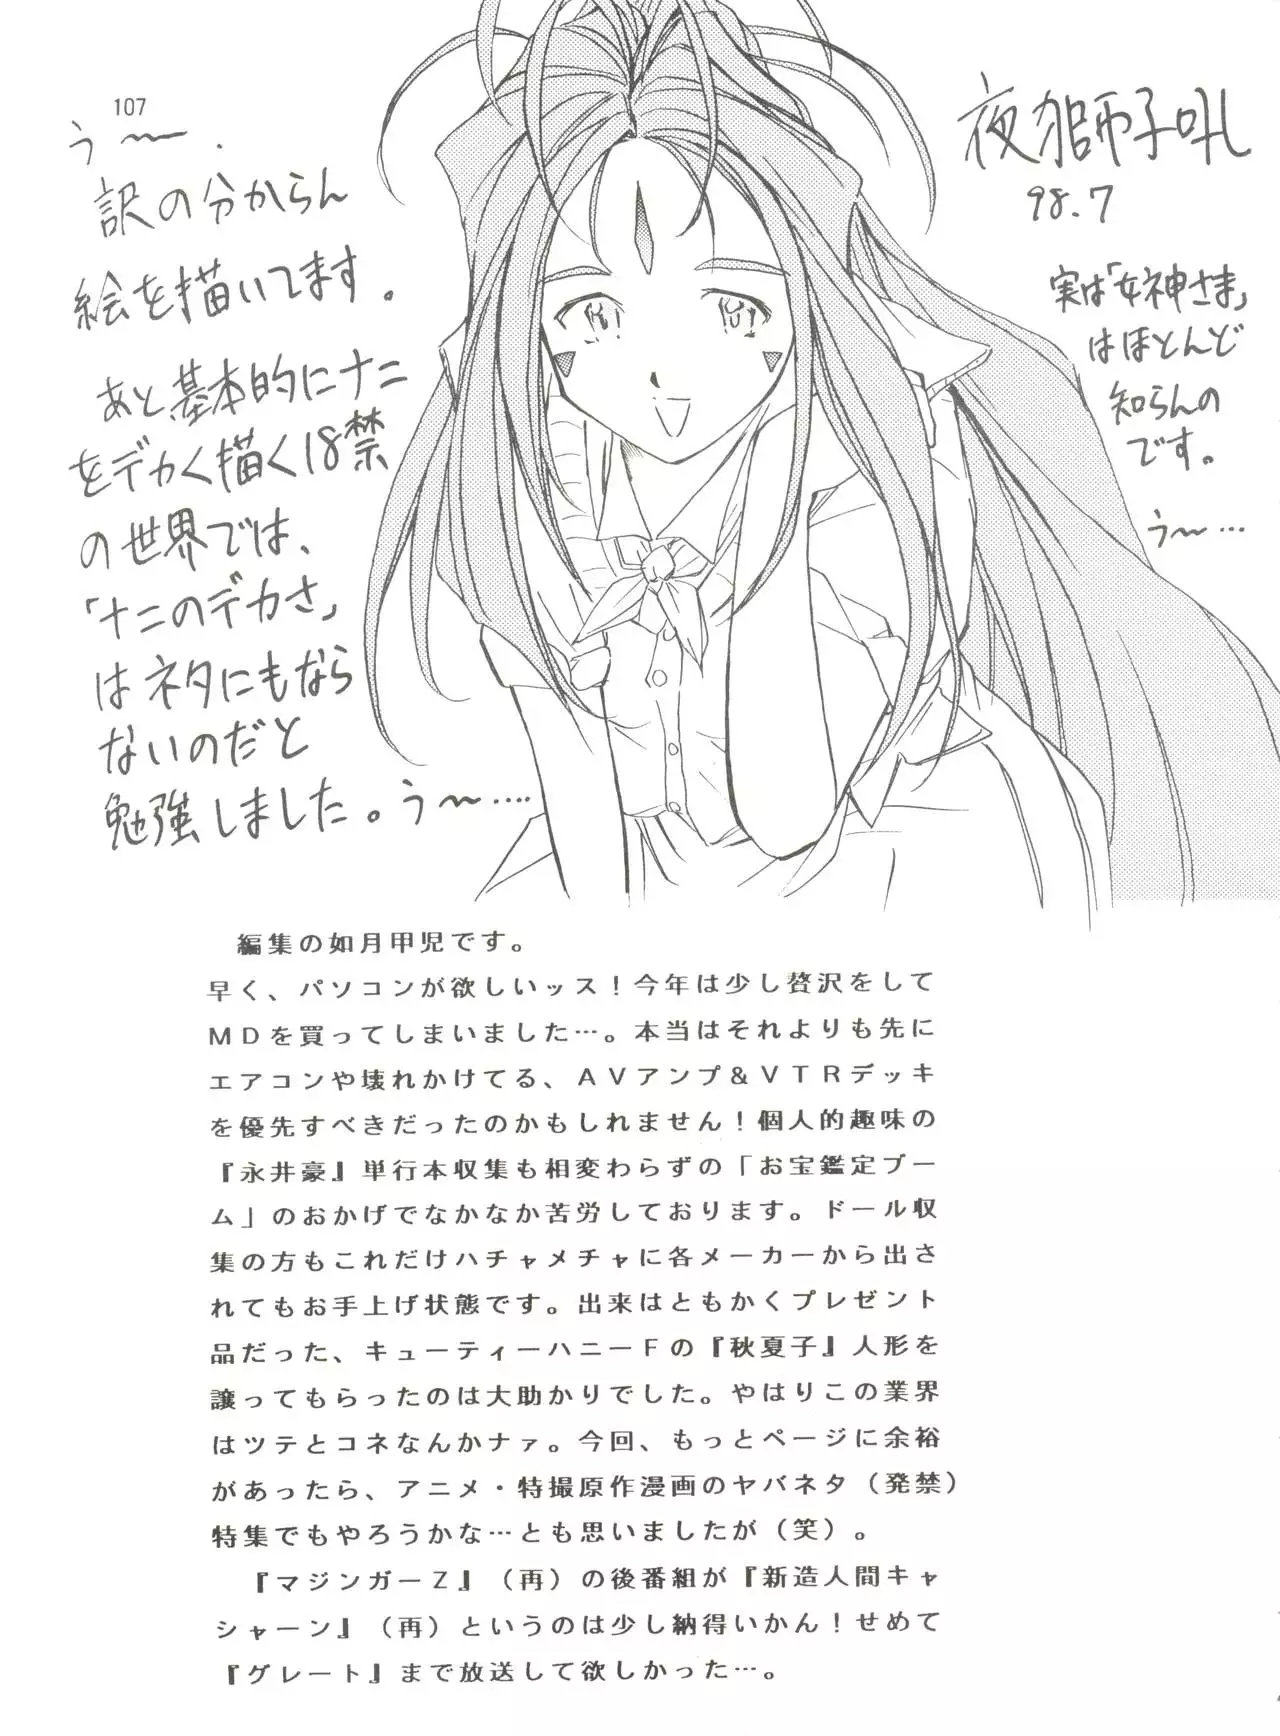 107
う〜〜.
訳の分からん
絵を描いてます。
あと基本的にナニ
をデカく描く18禁
の世界では、
「ナニのデカさ」
はネタにもなら
ないのだと
勉強しました。う〜〜....
98.7
実は「女神さま」
はほとんど
知らんの
です。
う〜...
編集の如月甲児です。
早く、パソコンが欲しいッス!今年は少し贅沢をして
MDを買ってしまいました…。本当はそれよりも先に
エアコンや壊れかけてる、AVアンプ&VTRデッキ
を優先すべきだったのかもしれません!個人的趣味の
『永井豪』単行本収集も相変わらずの「お宝鑑定ブー
ム」のおかげでなかなか苦労しております。ドール収
集の方もこれだけハチャメチャに各メーカーから出さ
れてもお手上げ状態です。出来はともかくプレゼント
品だった、キューティーハニーFの『秋夏子』人形を
譲ってもらったのは大助かりでした。やはりこの業界
はツテとコネなんかナァ。今回、もっとページに余裕
があったら、アニメ・特撮原作漫画のヤバネタ(発禁)
特集でもやろうかな…とも思いましたが(笑)。
『マジンガーZ』(再)の後番組が『新造人間キャ
シャーン』(再)というのは少し納得いかん!せめて
『グレート』まで放送して欲しかった…。